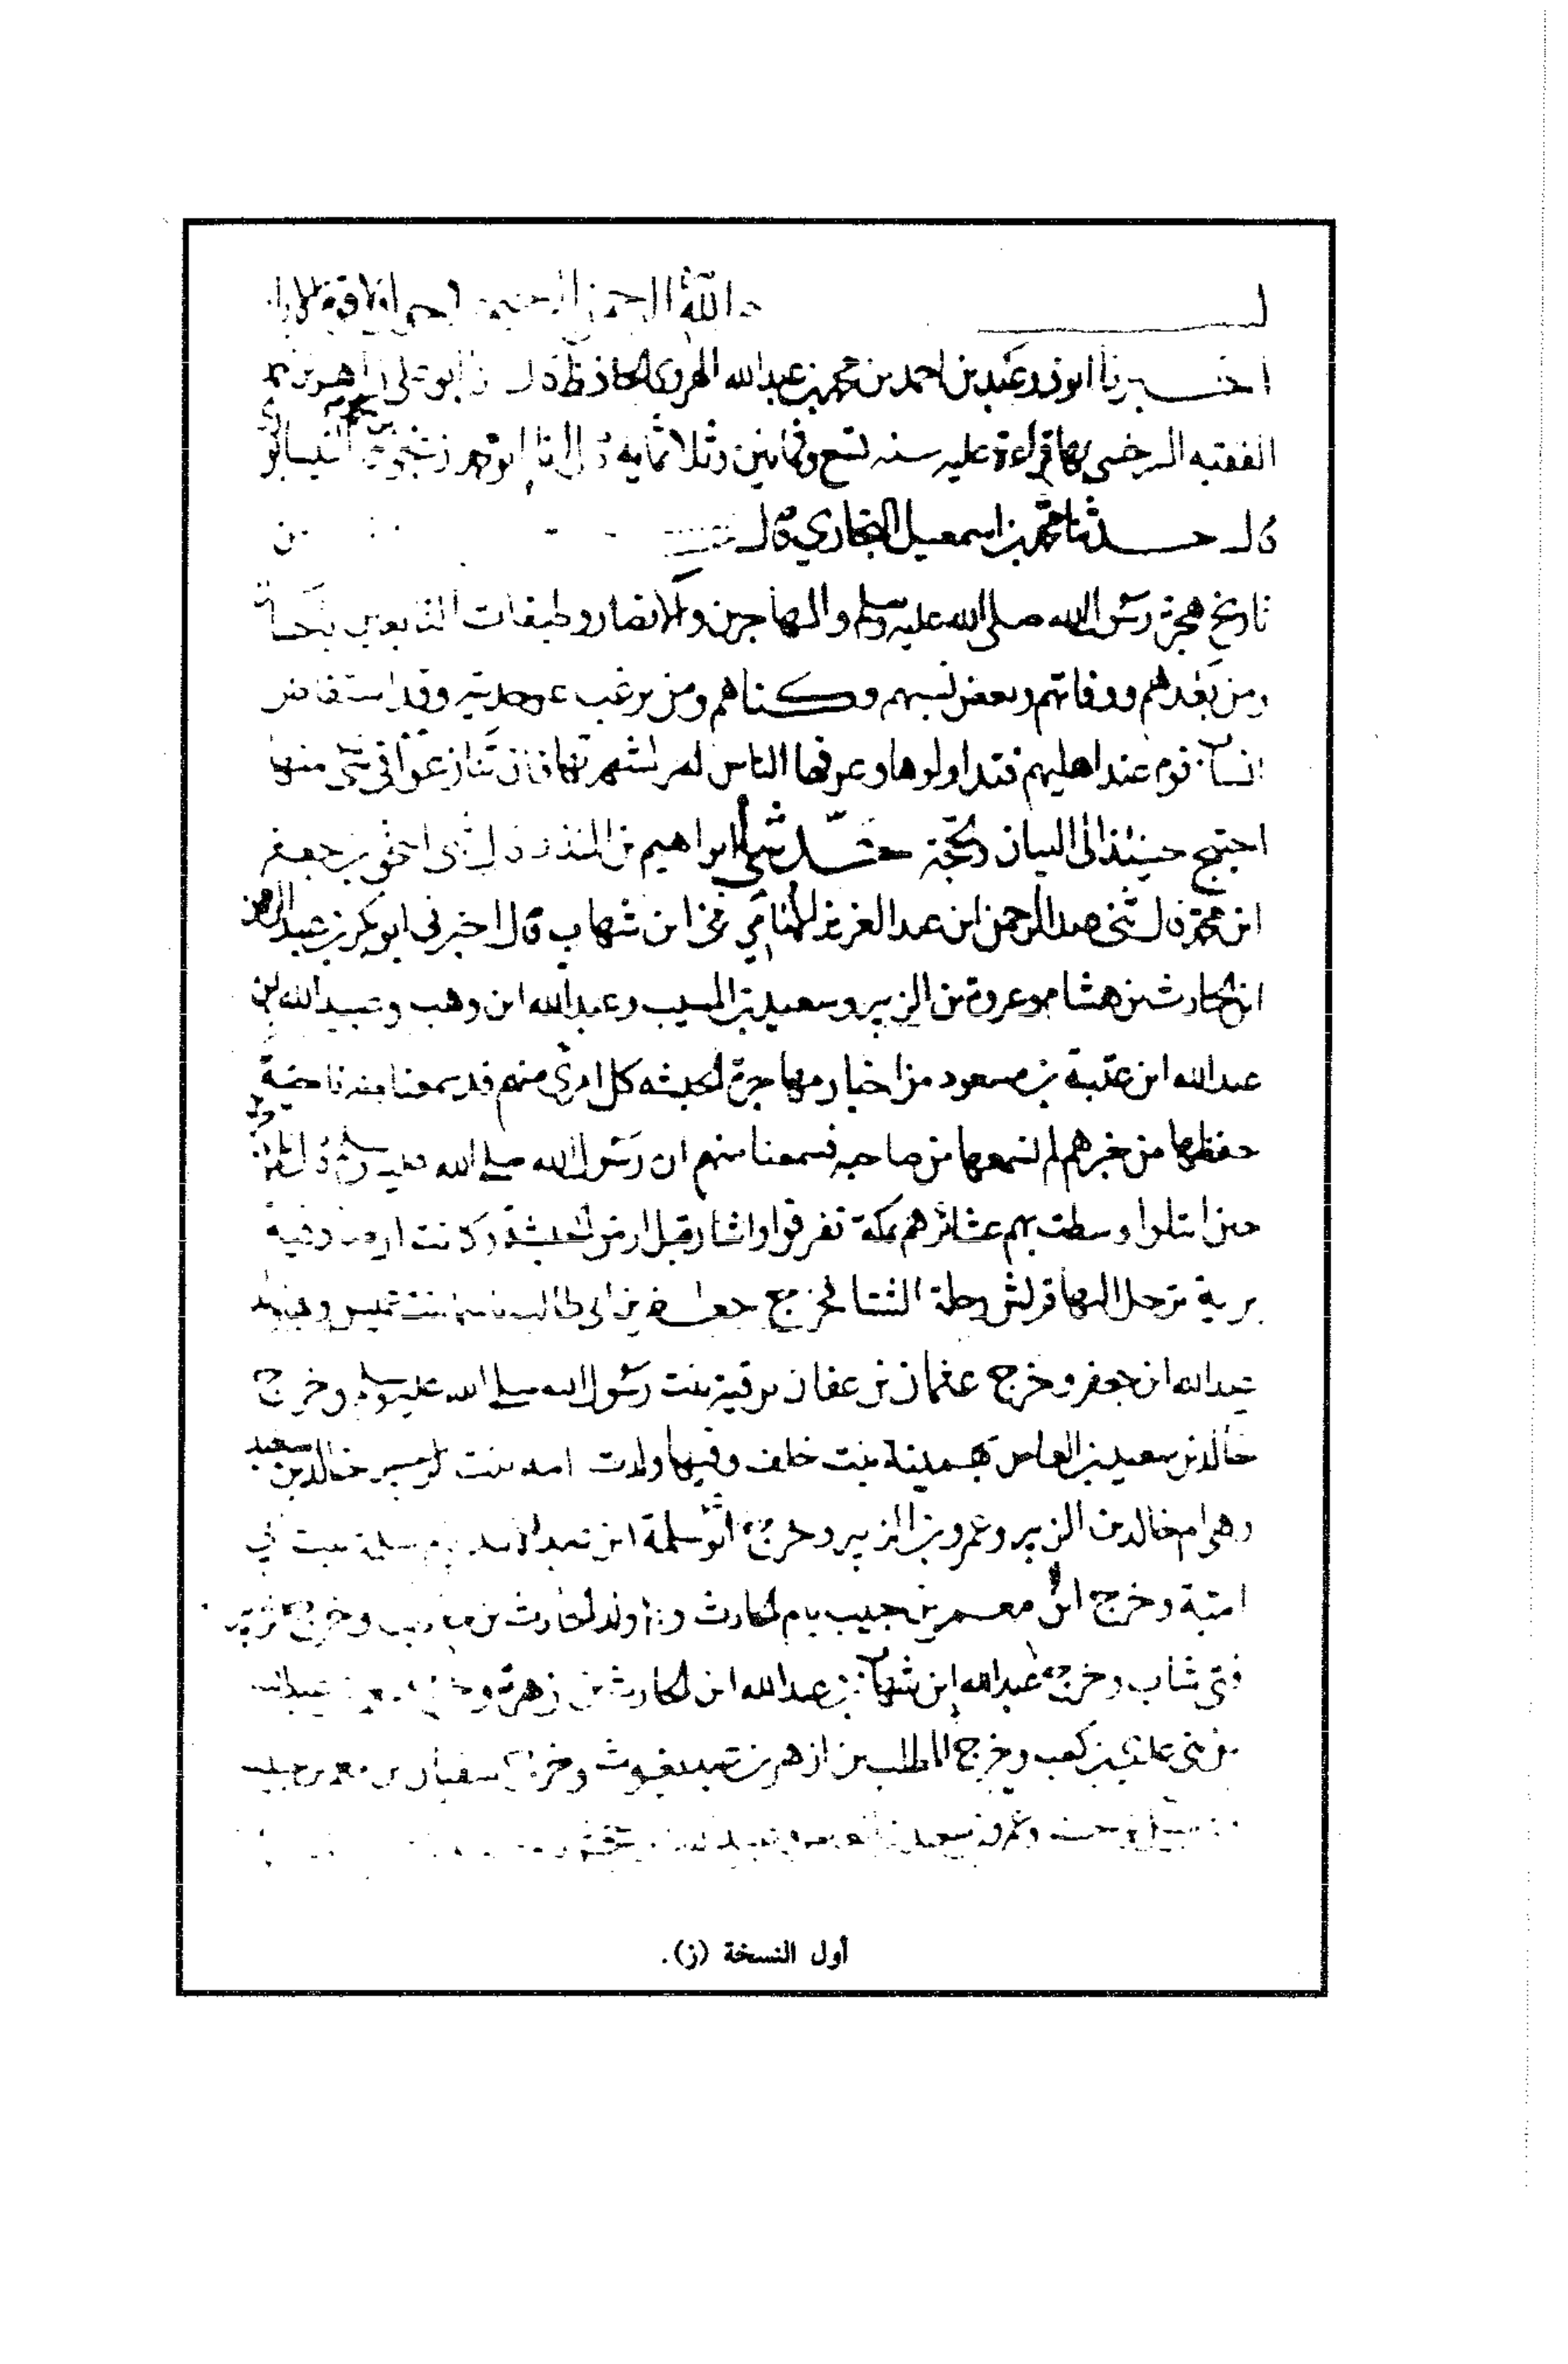 بسم الله الرحمن الرحيم لا حول ولا قوة الا بالله
اخبرنا ابو ذر عبد بن احمد بن محمد بن عبد الله الهروي الحافظ قال نا ابو علي زاهر بن احمد
الفقيه السرخسي بها قراءة عليه سنه تسع وثمانين وثلاثمايه قال انا ابو محمد زنجويه بن محمد النيسابوري
قال حدثنا محمد بن اسمعيل البخاري قال
تاريخ هجرة رسول الله صلى الله عليه وسلم والمهاجرين والانصار وطبقات التابعين باحسان
ومن بعدهم ووفاتهم وبعض نسبهم وكناهم ومن يرغب عن حديثه وقد استفاض
انساب قوم عند اهليهم فتداولوها وعرفها الناس لهم لشهرتها فان تنازعوا في شي منها
احتيج حينئذ الى البيان والحجة حدثني ابراهيم بن المنذر قال ثنى اسحق بن جعفر
ابن محمد قال ثنى عبد الرحمن ابن عبد العزيز الامامي عن ابن شهاب قال اخبرني ابو بكر بن عبد الرحمن
ابن الحارث بن هشام وعروة بن الزبير وسعيد بن المسيب وعبد الله ابن وهب وعبيد الله بن
عبد الله ابن عتبة بن مسعود من اخبار مهاجرة الحبشه كل امرئ منهم قد سمعنا منه ناحية
حفظها من خبرهم لم نسمعها من صاحبه فسمعنا منهم ان رسول الله صلى الله عليه وسلم قال
حين ابتلوا وسطت بهم عشائرهم بمكة تفرقوا واشار قبل ارض الحبشة وكانت ارضا دفية
برية ترحل اليها قريش رحلة الشتا فخرج جعفر بن ابي طالب باسما بنت عميس
عبد الله ابن جعفر وخرج عثمان بن عفان برقية بنت رسول الله صلى الله عليه وسلم وخرج
خالد بن سعيد بن العاص بهمينة بنت خلف وفيها ولدت امه بنت خالد بن سعيد
وهي ام خالد بن الزبير وعمرو بن الزبير وخرج ابو سلمة ابن عبد الاسد بام سلمة بنت ابي
امية وخرج ابن معمر بن حبيب بام الحارث وخرج
فتى شاب وخرج عبد الله ابن شهاب بن عبد الله ابن الحارث بن زهرة عبد الله
من بني عدي بن كعب وخرج المطلب بن ازهر بن عبد يغوث وخرج سفيان بن معمر بن حبيب
أول النسخة (ز).